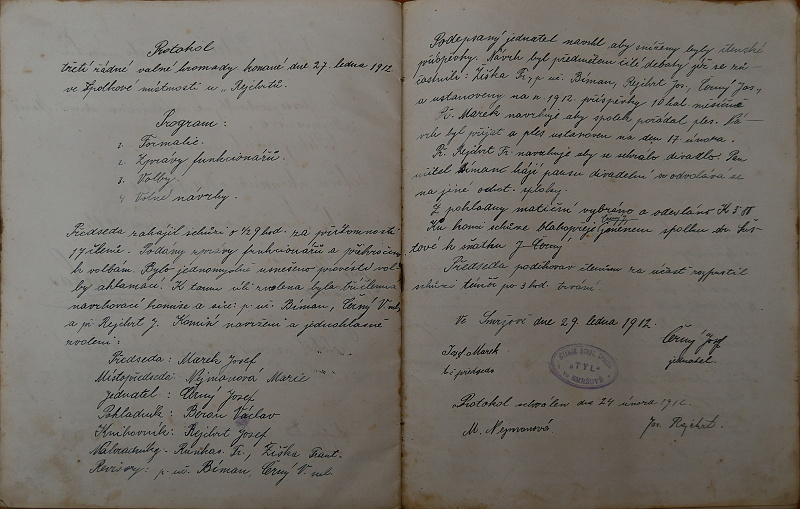 Protokol
třetí řádné valné hromady konané dne 27. ledna 1912
ve spolkové místnosti u „Rejchrtů.
Program:
1. Formalie.
2. Zprávy funkcionářů.
3. Volby.
4 Volné návrhy.
Předseda zahájil schůzi o ½9 hod. za přítomnosti
17 členů. Podány zprávy funkcionářů a přikročeno
k volbám. Bylo jednomyslně usneseno provésti vol-
by aklamací. K tomu cíli zvolena byla tříčlenná
navrhovací komise a sice: p. uč. Bíman, Černý V. ml.
a p. Rejchrt J. Komisí navrženi a jednohlasně
zvoleni:
Předseda: Marek Josef
Místopředseda: Nejmanová Marie
Jednatel: Černý Josef
Pokladník: Boran Václav
Knihovník: Rejchrt Josef
Náhradníky: Fr., Žiška Frant.
Revisory: p. uč. Bíman, Černý V. ml.
Podepsaný jednatel navrhl aby sníženy byly členské
příspěvky. Návrh byl předmětem čilé debaty jíž se zú-
častnili: Žiška Fr., p. uč. Bíman, Rejchrt Jos., Černý Jos.,
a ustanoveny na r. 1912 příspěvky 10 hal. měsíčně
Marek navrhuje aby spolek pořádal ples. Ná-
vrh byl přijat a ples ustanoven na den 17 února.
Fr. Rejchrt Fr. navrhuje aby se sehrálo divadlo. Pan
učitel Bíman hájí pausu divadelní a odvolává se
na jiné odbor. spolky.
Z pokladny matiční vybráno a odesláno K 5·
Ku konci schůze blahopřeje jménem spolku
k sňatku J. Černý
Předseda poděkovav členům za účast rozpustil
schůzi téměř po 3 hod. trvání.
Ve Smržově dne 29. ledna 1912.
Josef Marek
t. č. předseda
Černý Josef
jednatel.
„TYL“
ve SMRŽOVĚ
Protokol schválen dne 24 února 1912.
M. Nejmanová
Jos. Rejchrt.